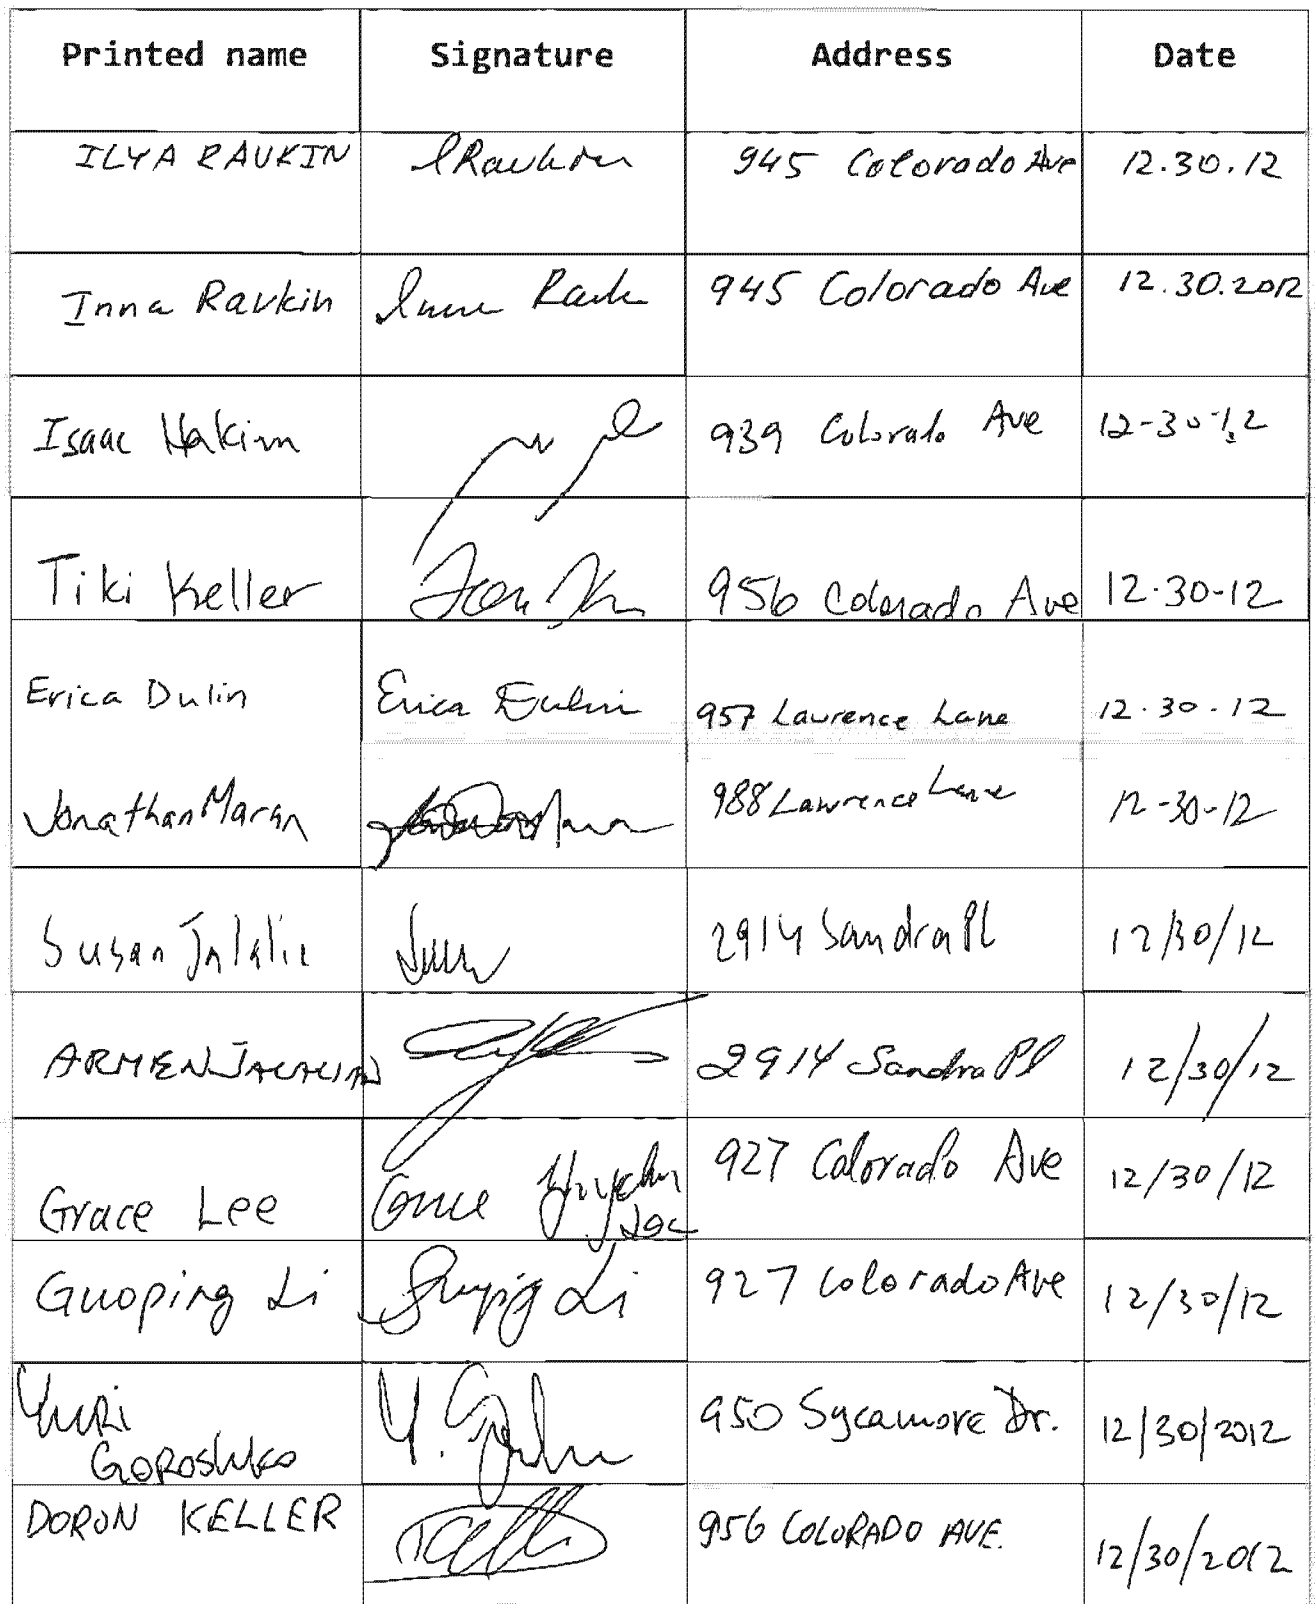 Printed name Signature Address Date
ILYA RAVKIN IRavkin 945 Colorado Ave 12.30.12
Inna Ravkin Inna Ravk 945 Colorado Ave 12.30.2012
Isaac Hakim 939 Colorado Ave 12-30-12
Tiki Keller 956 Colorado Ave 12-30-12
Erica Dulin Erica Dulin 957 Lawrence Lane 12.30.12
Jonathan Maran 988 Lawrence Lane 12-30-12
Susan Jalalie 2914 Sandra Pl 12/30/12
ARMEN JALALIAN 2914 Sandra Pl 12/30/12
Grace Lee Grace Lee 927 Colorado Ave 12/30/12
Guoping Li Guoping Li 927 Colorado Ave 12/30/12
YURI
GOROSHKO Y. 950 Sycamore Dr. 12/30/2012
DORON KELLER 956 COLORADO AVE. 12/30/2012